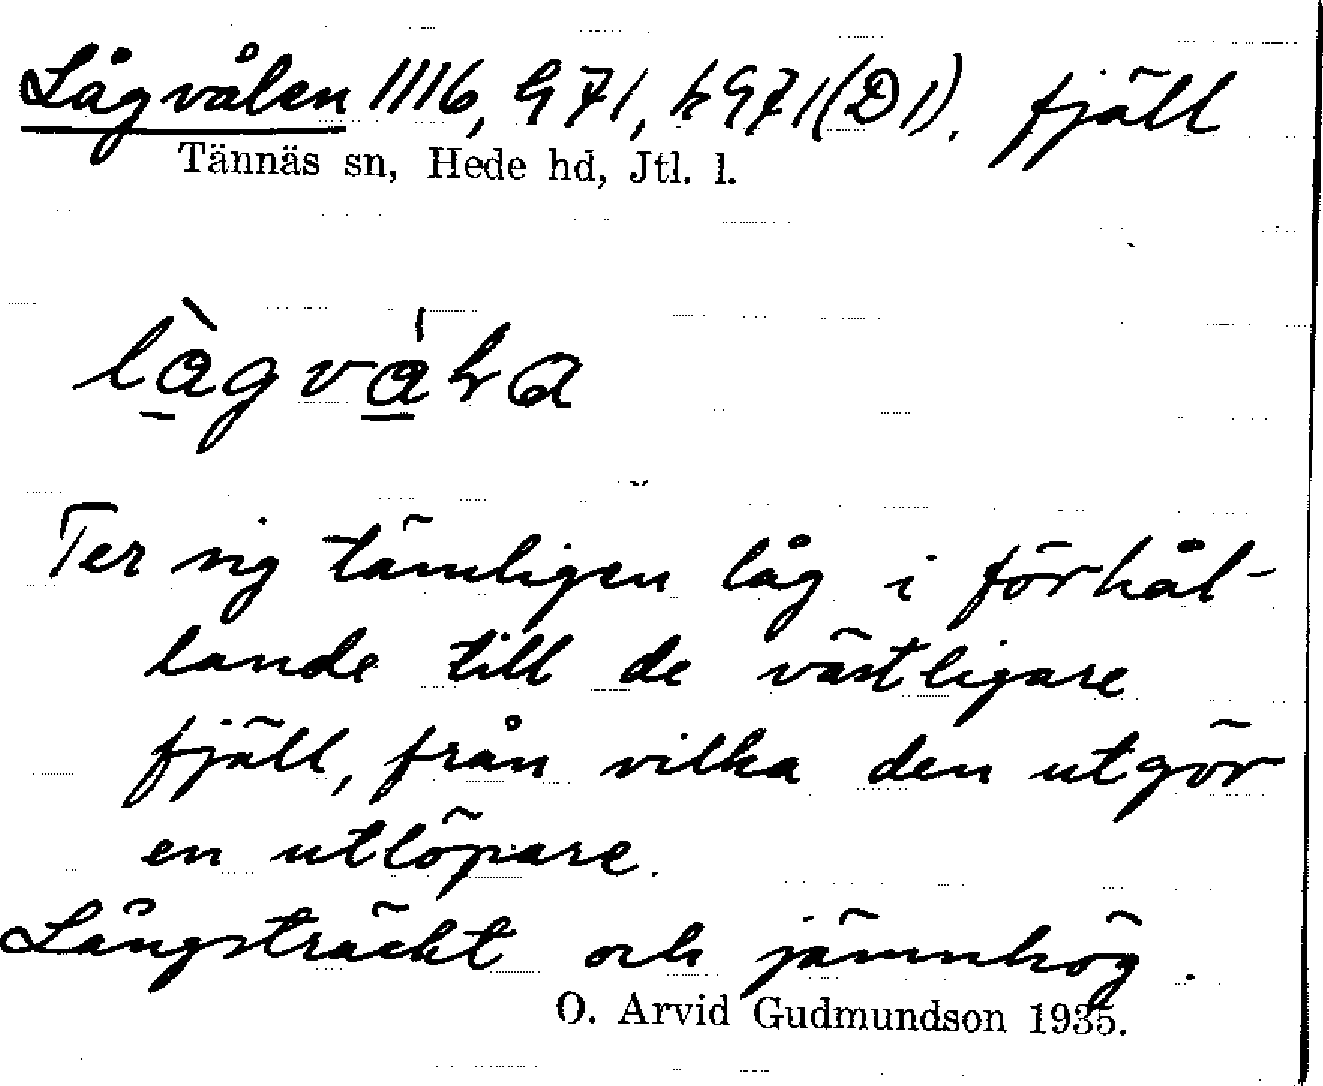 Lågvålen 1116, G71, h G71 (D1). fjäll
Tännäs sn, Hede hd, Jtl. l.
Ter sig tämligen låg i förhål-
lande till de västligare
fjäll, från vilka den utgör
en utlöpare.
Långsträckt och jämnhög.
O. Arvid Gudmundson 1935.